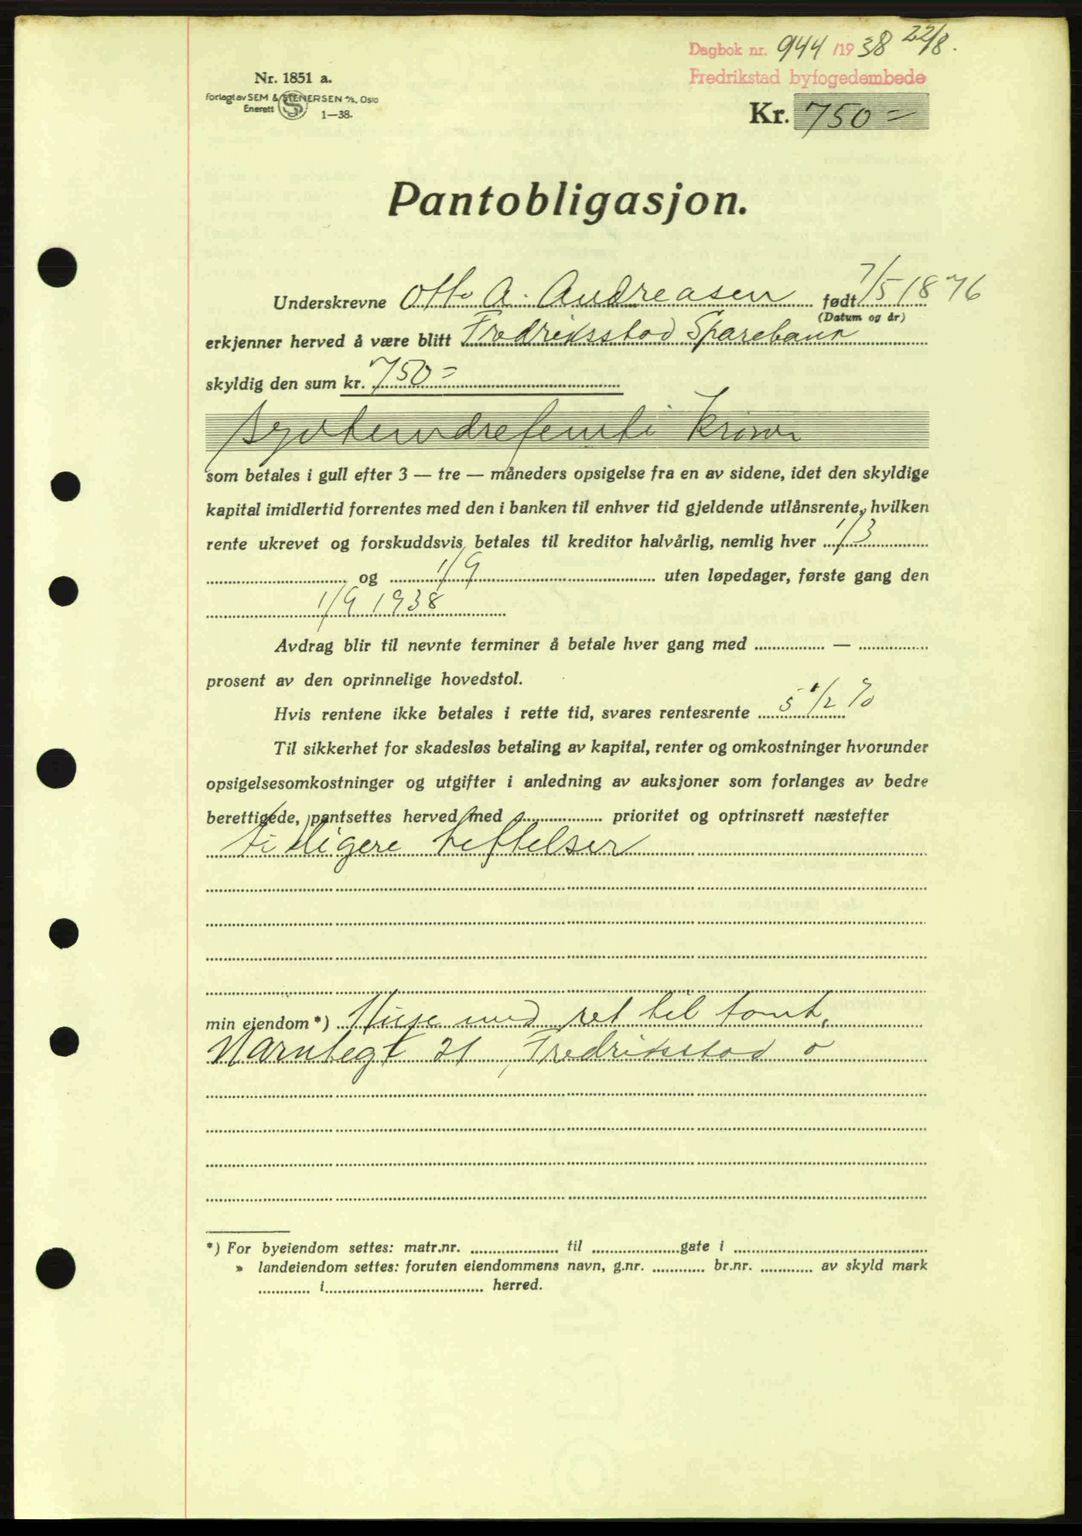 Dagbok nr. 944 /1938 22/8.
Fredrikstad byfogedembede
Nr. 1851 a.
Forlagt av SEM & STENERSEN A/S, Oslo
Enerett
1—38.
Kr. 750 =
Pantobligasjon.
Underskrevne Otto A. Andreasen født 7/5 1876
(Datum og år)
erkjenner herved å være blitt Fredriksstad Sparebank
skyldig den sum kr. 750 =
syvhundrefemti kroner
som betales i gull efter 3 — tre — måneders opsigelse fra en av sidene, idet den skyldige
kapital imidlertid forrentes med den i banken til enhver tid gjeldende utlånsrente, hvilken
rente ukrevet og forskuddsvis betales til kreditor halvårlig, nemlig hver 1/3
og 1/9 uten løpedager, første gang den
1/9 1938
Avdrag blir til nevnte terminer å betale hver gang med — 
prosent av den oprinnelige hovedstol.
Hvis rentene ikke betales i rette tid, svares rentesrente 5 1/2 %
Til sikkerhet for skadesløs betaling av kapital, renter og omkostninger hvorunder
opsigelsesomkostninger og utgifter i anledning av auksjoner som forlanges av bedre
berettigede, pantsettes herved med prioritet og optrinsrett næstefter
tidligere heftelser
min eiendom *) Huse med ret til tomt,
21 Fredriksstad o
*) For byeiendom settes: matr.nr. til gate i
» landeiendom settes: foruten eiendommens navn, g.nr. br.nr. av skyld mark
i herred.